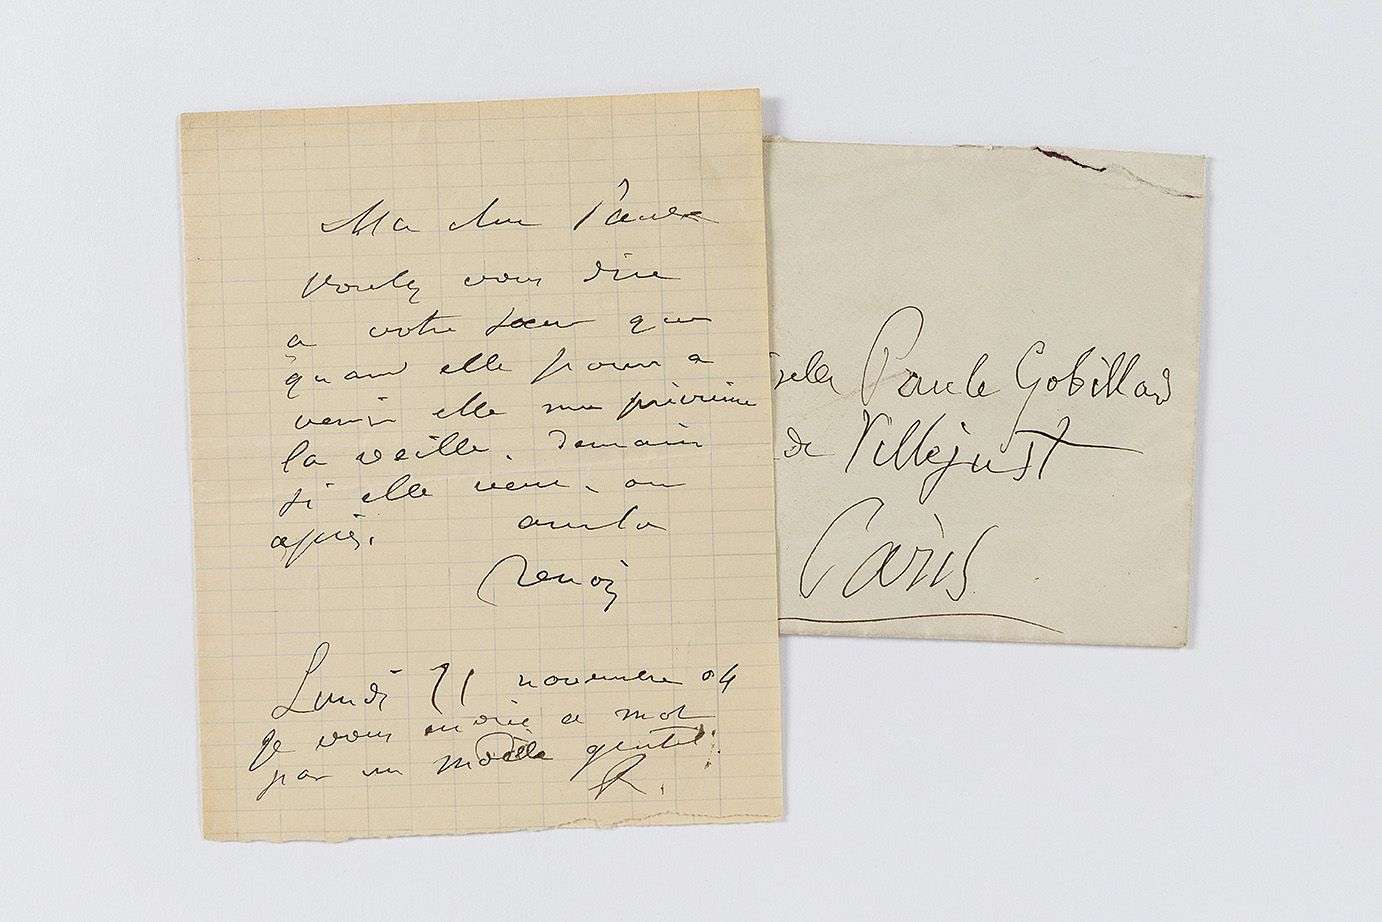 Ma chère Paule
voulez vous dire
a votre soeur que
quand elle pourra
venir elle me prévienne
la veille. Demain
si elle veut, ou
après.
amitiés
Renoir
Lundi 21 novembre 04
Je vous envoie ce mot
par un modèle gentil.
R.
Paule Gobillard
de Villejust
Paris